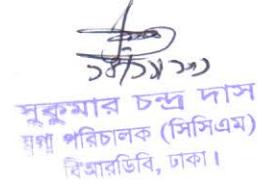 সুকুমার চন্দ্র দাস
যুগ্ম পরিচালক (সিসিএম)
বিআরডিবি, ঢাকা।